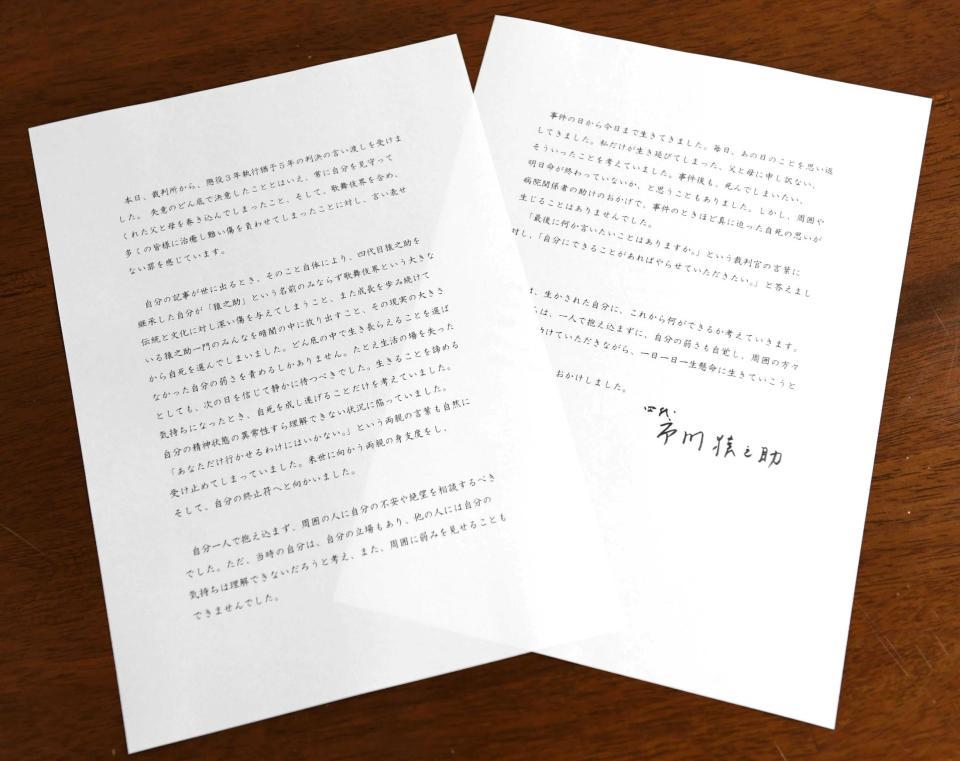 本日、裁判所から、懲役３年執行猶予５年の判決の言い渡しを受けま
した。 失意のどん底で決意したこととはいえ、常に自分を見守って
くれた父と母を巻き込んでしまったこと、そして、歌舞伎界を含め、
多くの皆様に治癒し難い傷を負わせてしまったことに対し、言い表せ
ない罪を感じています。
自分の記事が世に出るとき、そのこと自体により、四代目猿之助を
継承した自分が「猿之助」という名前のみならず歌舞伎界という大きな
伝統と文化に対し深い傷を与えてしまうこと、また成長を歩み続けて
いる猿之助一門のみんなを暗闇の中に放り出すこと、その現実の大きさ
から自死を選んでしまいました。どん底の中で生き長らえることを選ば
なかった自分の弱さを責めるしかありません。たとえ生活の場を失った
としても、次の日を信じて静かに待つべきでした。生きることを諦める
気持ちになったとき、自死を成し遂げることだけを考えていました。
自分の精神状態の異常性すら理解できない状況に陥っていました。
「あなただけ行かせるわけにはいかない。」という両親の言葉も自然に
受け止めてしまっていました。来世に向かう両親の身支度をし、
そして、自分の終止符へと向かいました。
自分一人で抱え込まず、周囲の人に自分の不安や絶望を相談するべき
でした。ただ、当時の自分は、自分の立場もあり、他の人には自分の
気持ちは理解できないだろうと考え、また、周囲に弱みを見せることも
できませんでした。
事件の日から今日まで生きてきました。毎日、あの日のことを思い返
してきました。私だけが生き延びてしまった、父と母に申し訳ない、
そういったことを考えていました。事件後も、死んでしまいたい、
明日命が終わっていないか、と思うこともありました。しかし、周囲や
病院関係者の助けのおかげで、事件のときほど真に迫った自死の思いが
生じることはありませんでした。
「最後に何か言いたいことはありますか。」という裁判官の言葉に
対し、「自分にできることがあればやらせていただきたい。」と答えまし
、生かされた自分に、これから何ができるか考えていきます。
は、一人で抱え込まずに、自分の弱さも自覚し、周囲の方々
けていただきながら、一日一日一生懸命に生きていこうと
おかけしました。
四代
市川猿之助